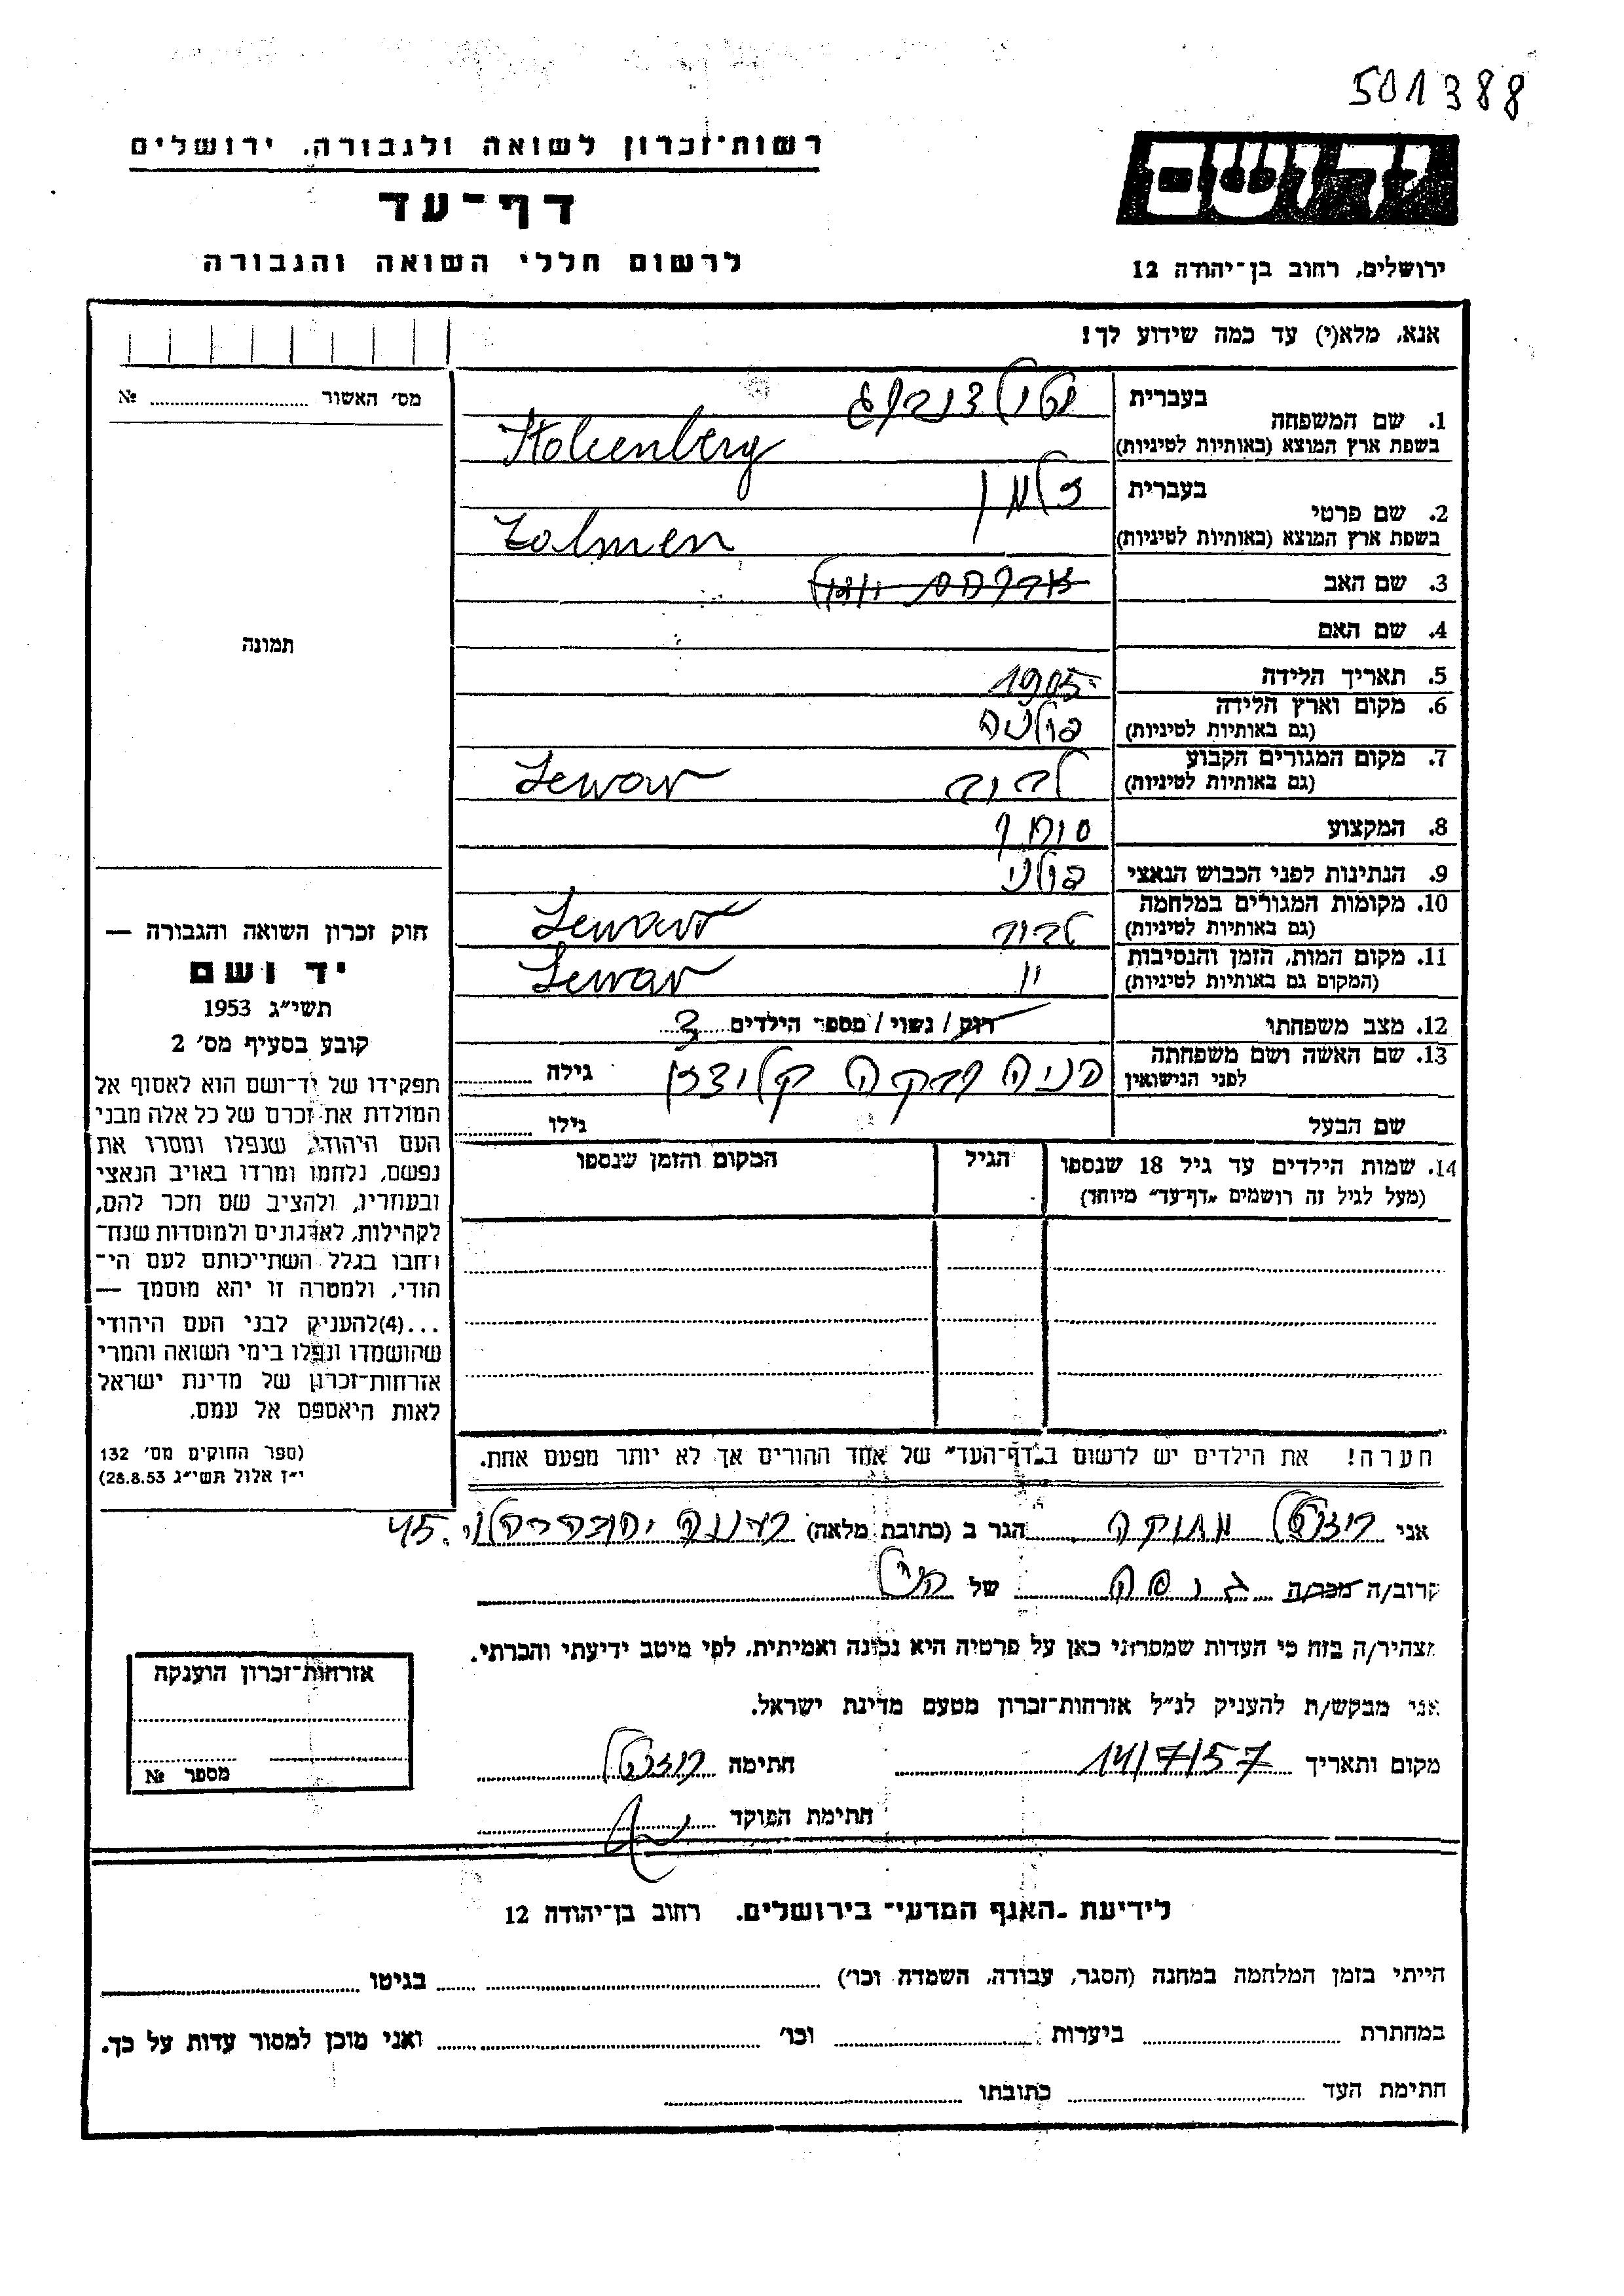 501388
רשות־זכרון לשואה ולגבורה, ירושלים
דף־עד
לרשום חללי השואה והגבורה
ידושם
ירושלים, רחוב בן־יהודה 12
אנא, מלא(י) עד כמה שידוע לך!
מס׳ האשור № 
תמונה
1. שם המשפחה
בעברית
בשפת ארץ המוצא (באותיות לטיניות) Stolzenberg
2. שם פרטי
בעברית זלמן
בשפת ארץ המוצא (באותיות לטיניות) Zolmen
3. שם האב
4. שם האם
5. תאריך הלידה 1905
6. מקום וארץ הלידה פולניה
(גם באותיות לטיניות)
7. מקום המגורים הקבוע
(גם באותיות לטיניות)
8. המקצוע סוחר
9. הנתינות לפני הכבוש הנאצי פולני
10. מקומות המגורים במלחמה
(גם באותיות לטיניות)
11. מקום המות, הזמן והנסיבות "
(המקום גם באותיות לטיניות)
12. מצב משפחתי רוק / נשוי / מספר הילדים
13. שם האשה ושם משפחתה גילה
לפני הנישואין
שם הבעל גילו
14. שמות הילדים עד גיל 18 שנספו הגיל המקום והזמן שנספו
(מעל לגיל זה רושמים „דף־עד״ מיוחד)
הערה! את הילדים יש לרשום ב„דף־העד״ של אחד ההורים אך לא יותר מפעם אחת.
חוק זכרון השואה והגבורה —
יד ושם
תשי״ג 1953
קובע בסעיף מס׳ 2
תפקידו של יד־ושם הוא לאסוף אל
המולדת את זכרם של כל אלה מבני
העם היהודי, שנפלו ומסרו את
נפשם, נלחמו ומרדו באויב הנאצי
ובעוזריו, ולהציב שם וזכר להם,
לקהילות, לארגונים ולמוסדות שנח־
רחבו בגלל השתייכותם לעם הי־
הודי, ולמטרה זו יהא מוסמך —
...(4)להעניק לבני העם היהודי
שהושמדו ונפלו בימי השואה והמרי
אזרחות־זכרון של מדינת ישראל
לאות היאספם אל עמם.
(ספר החוקים מס׳ 132
י״ז אלול תשי״ג 28.8.53)
אני הגר ב (כתובת מלאה) 45.
קרוב/ה מכר/ה של
מצהיר/ה בזה כי העדות שמסרתי כאן על פרטיה היא נכונה ואמיתית, לפי מיטב ידיעתי והכרתי.
אני מבקש/ת להעניק לנ״ל אזרחות־זכרון מטעם מדינת ישראל.
מקום ותאריך 14/7/57 חתימה
חתימת הפוקד
אזרחות־זכרון הוענקה
מספר №
לידיעת „האגף המדעי״ בירושלים, רחוב בן־יהודה 12
הייתי בזמן המלחמה במחנה (הסגר, עבודה, השמדה וכו׳) בגיטו
במחתרת ביערות וכו׳ ואני מוכן למסור עדות על כך.
חתימת העד כתובתו